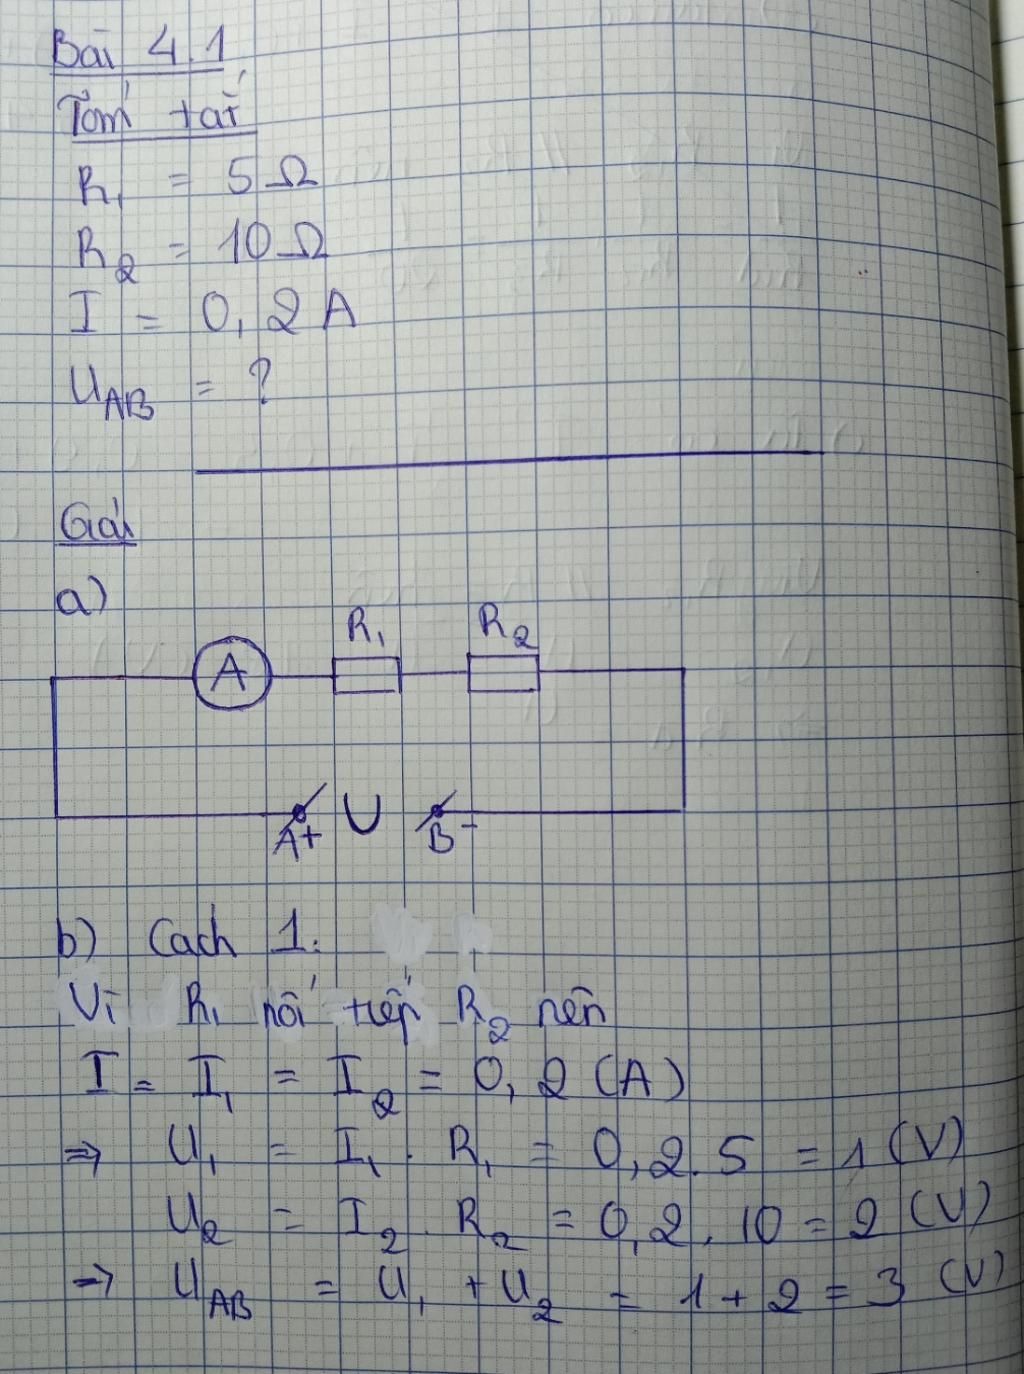 Bài 4.1
Tóm tắt
R₁ = 5 Ω
R₂ = 10 Ω
I = 0,2 A
U_AB = ?
Giải
a)
R₁ R₂
A
A+ U B-
b) Cách 1:
Vì R₁ nối tiếp R₂ nên
I = I₁ = I₂ = 0,2 (A)
⇒ U₁ = I₁ . R₁ = 0,2.5 = 1 (V)
U₂ = I₂ . R₂ = 0,2.10 = 2 (V)
⇒ U_AB = U₁ + U₂ = 1 + 2 = 3 (V)